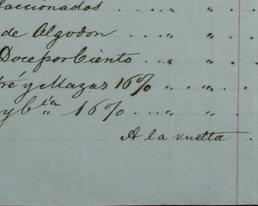 accionados . . . . " . .
de Algodon . . . " . " .
Doce por Ciento . . " . " .
tré y Mazas 16% . " . " .
y bla 16% . . " . " .
A la vuelta .